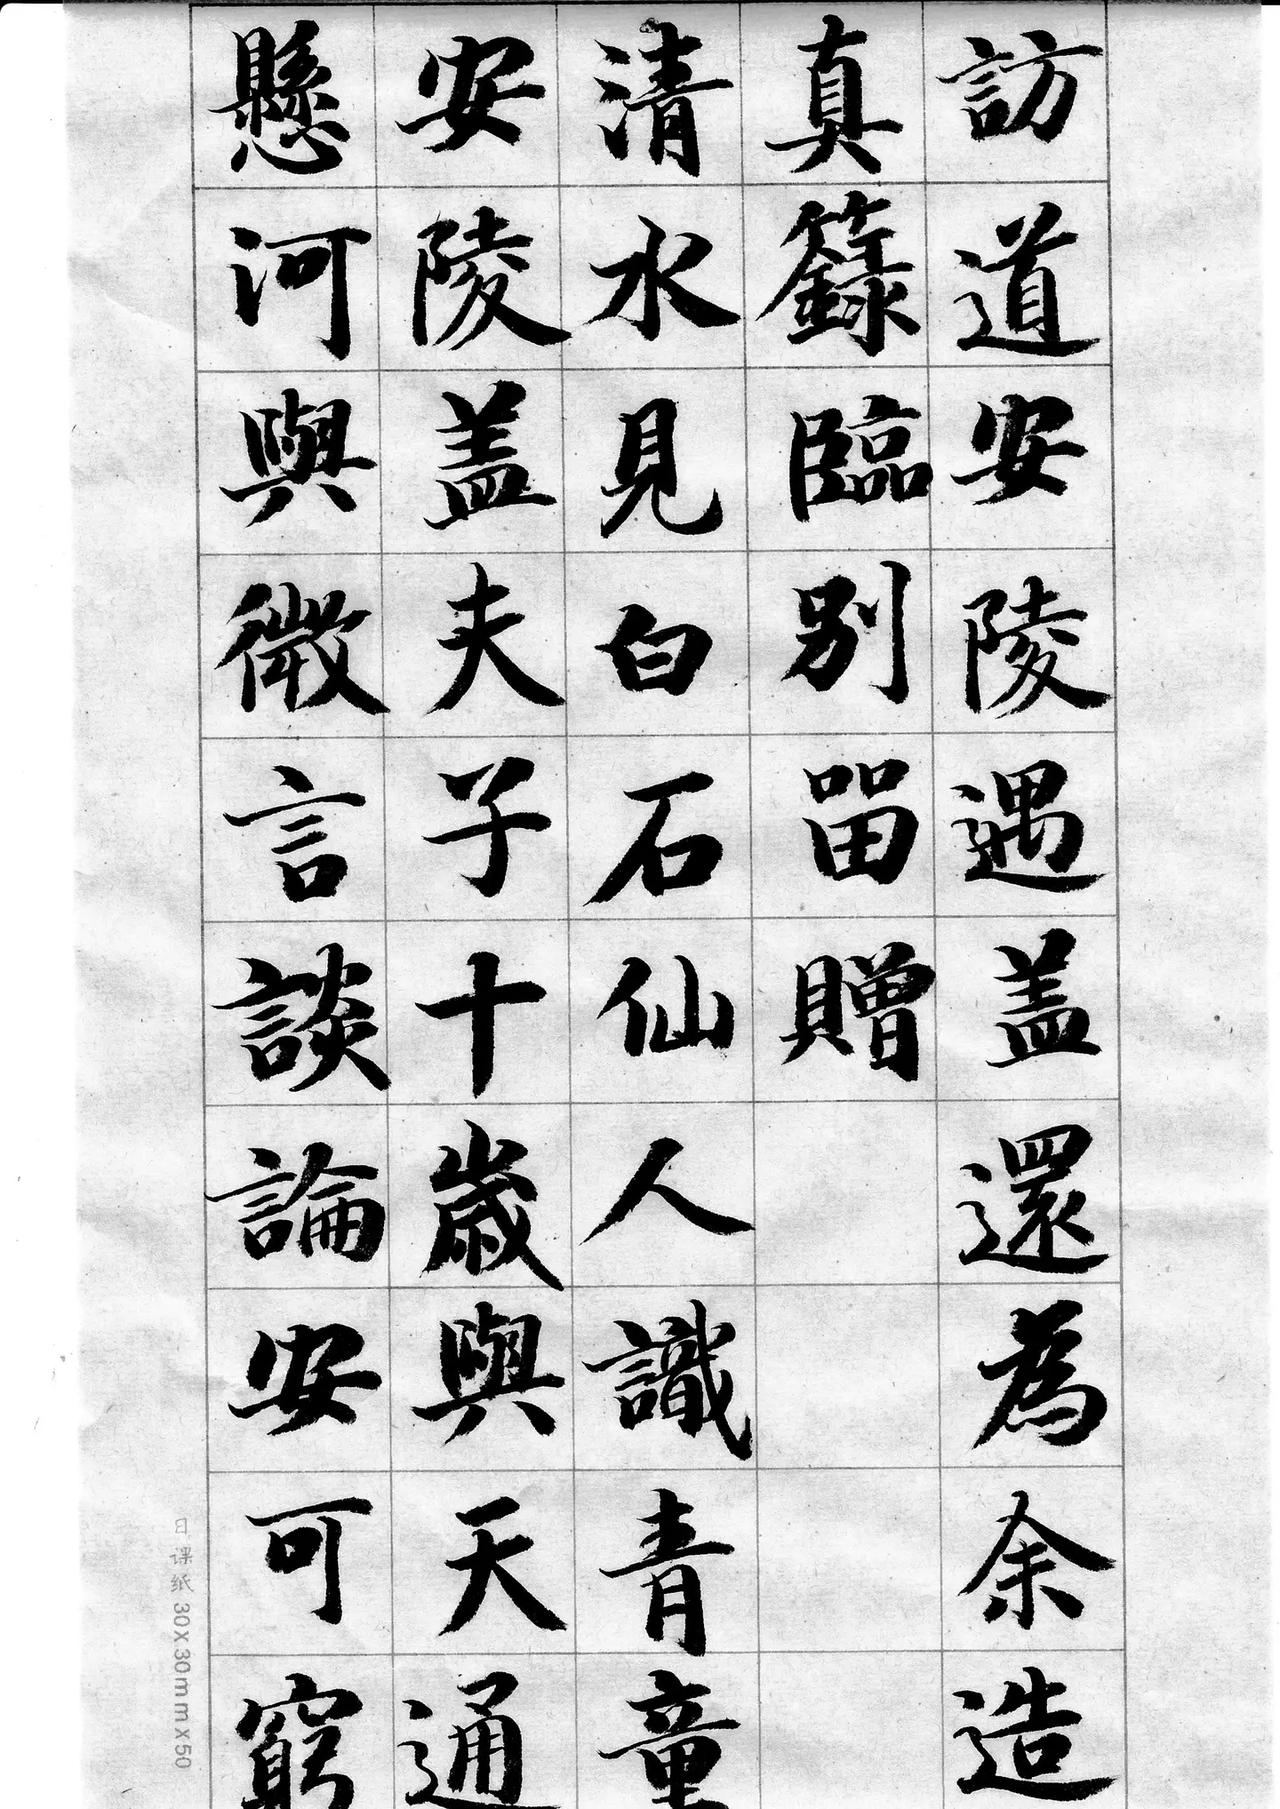 訪道安陵遇盖還為余造
真籙臨別留贈
清水見白石仙人識青童
安陵盖夫子十歲與天通
懸河與微言談論安可窮
日课纸 30X30mmX50